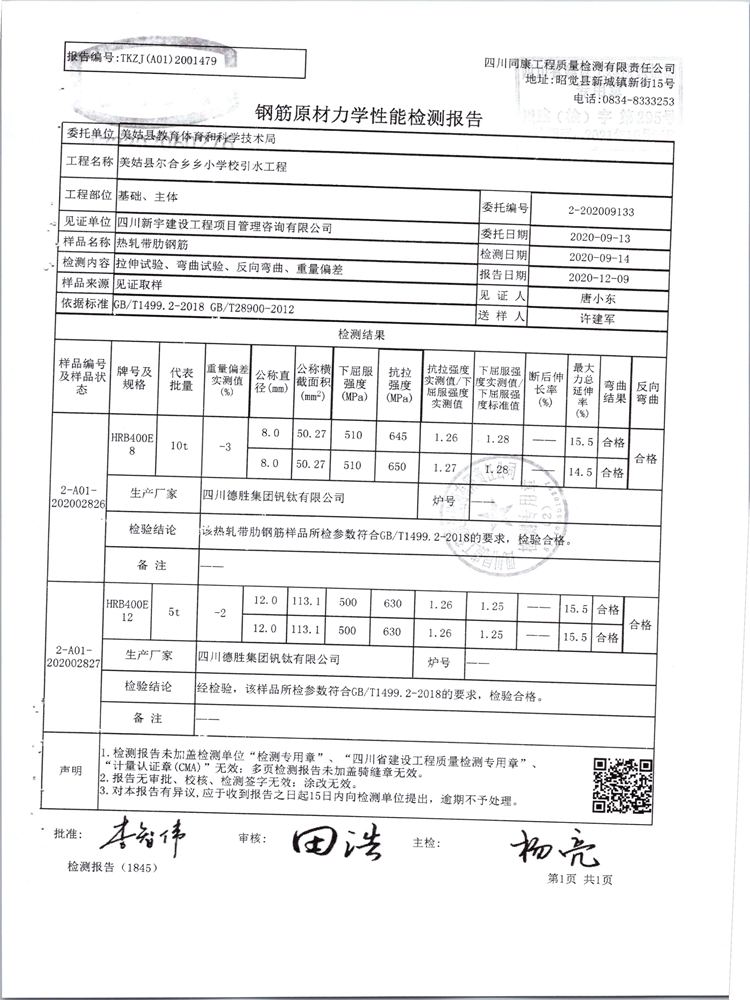 报告编号:TKZJ(A01)2001479
四川同康工程质量检测有限责任公司
地址:昭觉县新城镇新街15号
电话:0834-8333253
钢筋原材力学性能检测报告
委托单位 美姑县教育体育和科学技术局
工程名称 美姑县尔合乡乡小学校引水工程
工程部位 基础、主体 委托编号 2-202009133
见证单位 四川新宇建设工程项目管理咨询有限公司 委托日期 2020-09-13
样品名称 热轧带肋钢筋 检测日期 2020-09-14
检测内容 拉伸试验、弯曲试验、反向弯曲、重量偏差 报告日期 2020-12-09
样品来源 见证取样 见 证 人 唐小东
依据标准 GB/T1499.2-2018 GB/T28900-2012 送 样 人 许建军
检测结果
样品编号及样品状态 牌号及规格 代表批量 重量偏差实测值(%) 公称直径(mm) 公称横截面积(mm²) 下屈服强度(MPa) 抗拉强度(MPa) 抗拉强度实测值/下屈服强度实测值 下屈服强度实测值/下屈服强度标准值 断后伸长率(%) 最大力总延伸率(%) 弯曲结果 反向弯曲
2-A01-202002826 HRB400E 8 10t -3 8.0 50.27 510 645 1.26 1.28 —— 15.5 合格 合格
8.0 50.27 510 650 1.27 1.28 —— 14.5 合格
生产厂家 四川德胜集团钒钛有限公司 炉号 ——
检验结论 该热轧带肋钢筋样品所检参数符合GB/T1499.2-2018的要求，检验合格。
备 注 ——
2-A01-202002827 HRB400E 12 5t -2 12.0 113.1 500 630 1.26 1.25 —— 15.5 合格 合格
12.0 113.1 500 630 1.26 1.25 —— 15.5 合格
生产厂家 四川德胜集团钒钛有限公司 炉号 ——
检验结论 经检验，该样品所检参数符合GB/T1499.2-2018的要求，检验合格。
备 注 ——
声明
1.检测报告未加盖检测单位“检测专用章”、“四川省建设工程质量检测专用章”、
“计量认证章(CMA)”无效；多页检测报告未加盖骑缝章无效。
2.报告无审批、校核、检测签字无效；涂改无效。
3.对本报告有异议,应于收到报告之日起15日内向检测单位提出，逾期不予处理。
批准: 李智伟 审核: 田浩 主检: 杨亮
检测报告（1845）
第1页 共1页